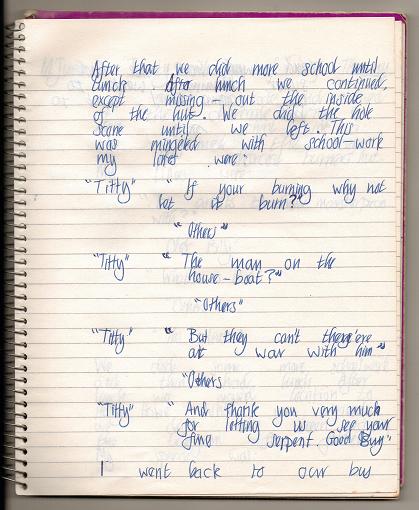 After that we did more school until
lunch. After lunch we continued,
except missing-out the inside
of the hut. We did the hole
scane until we left. This
was mingled with school-work
my lines were:
"Titty" "If your burning why not
let it burn?"
"Others"
"Titty" "The man on the
house-boat?"
"Others"
"Titty" "But they can't there'ere
at war with him"
"Others
"Titty" "And thank you very much
for letting us see your
fine serpent. Good Buy"
I went back to our bus